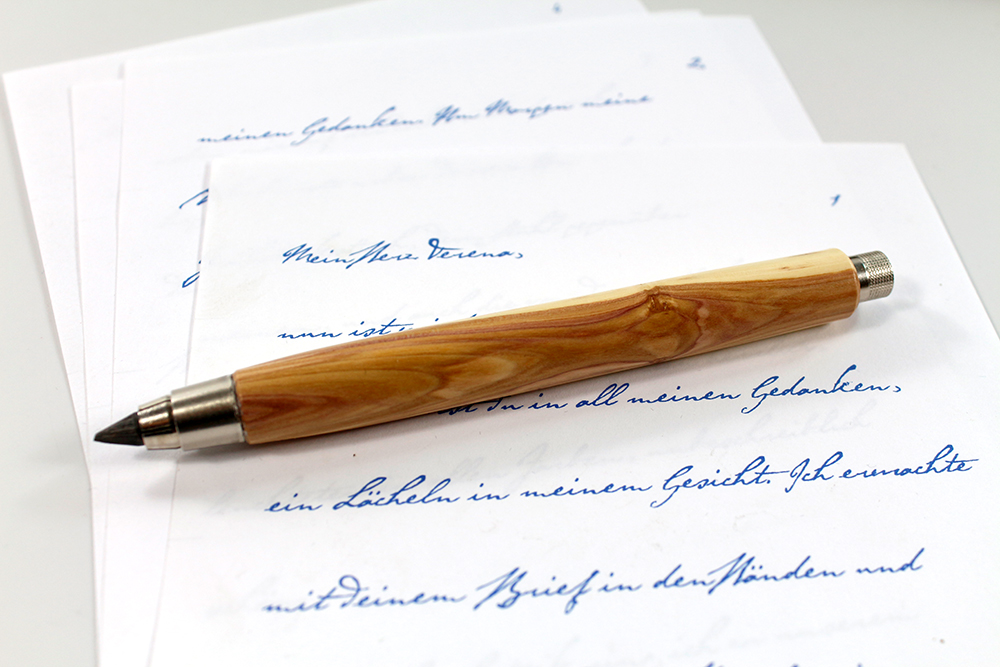 2
meinen Gedanken. Am Morgen meine
1
Mein Herz Verena,
nun ist
ist Du in all meinen Gedanken,
ein Lächeln in meinem Gesicht. Ich erwachte
mit Deinem Brief in den Händen und